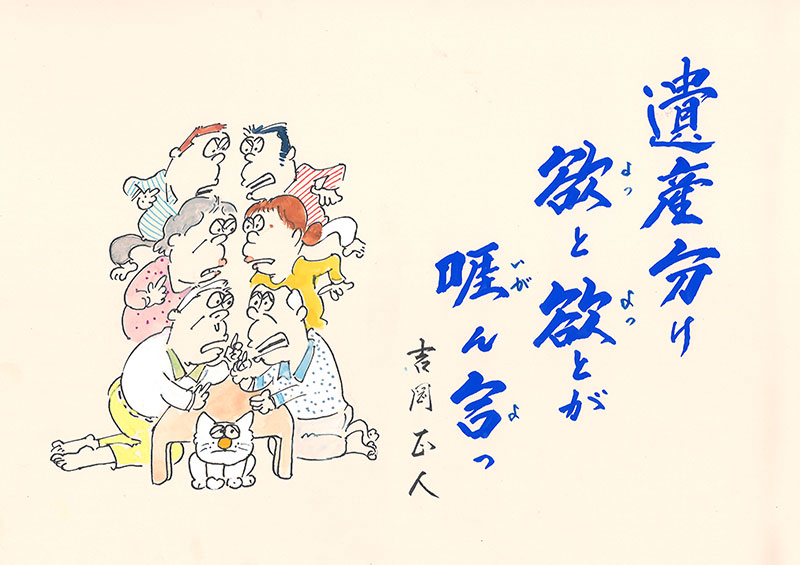 遺産分け
欲と欲とが
よっ
よっ
啀ん言っ
いが
よ
吉岡正人